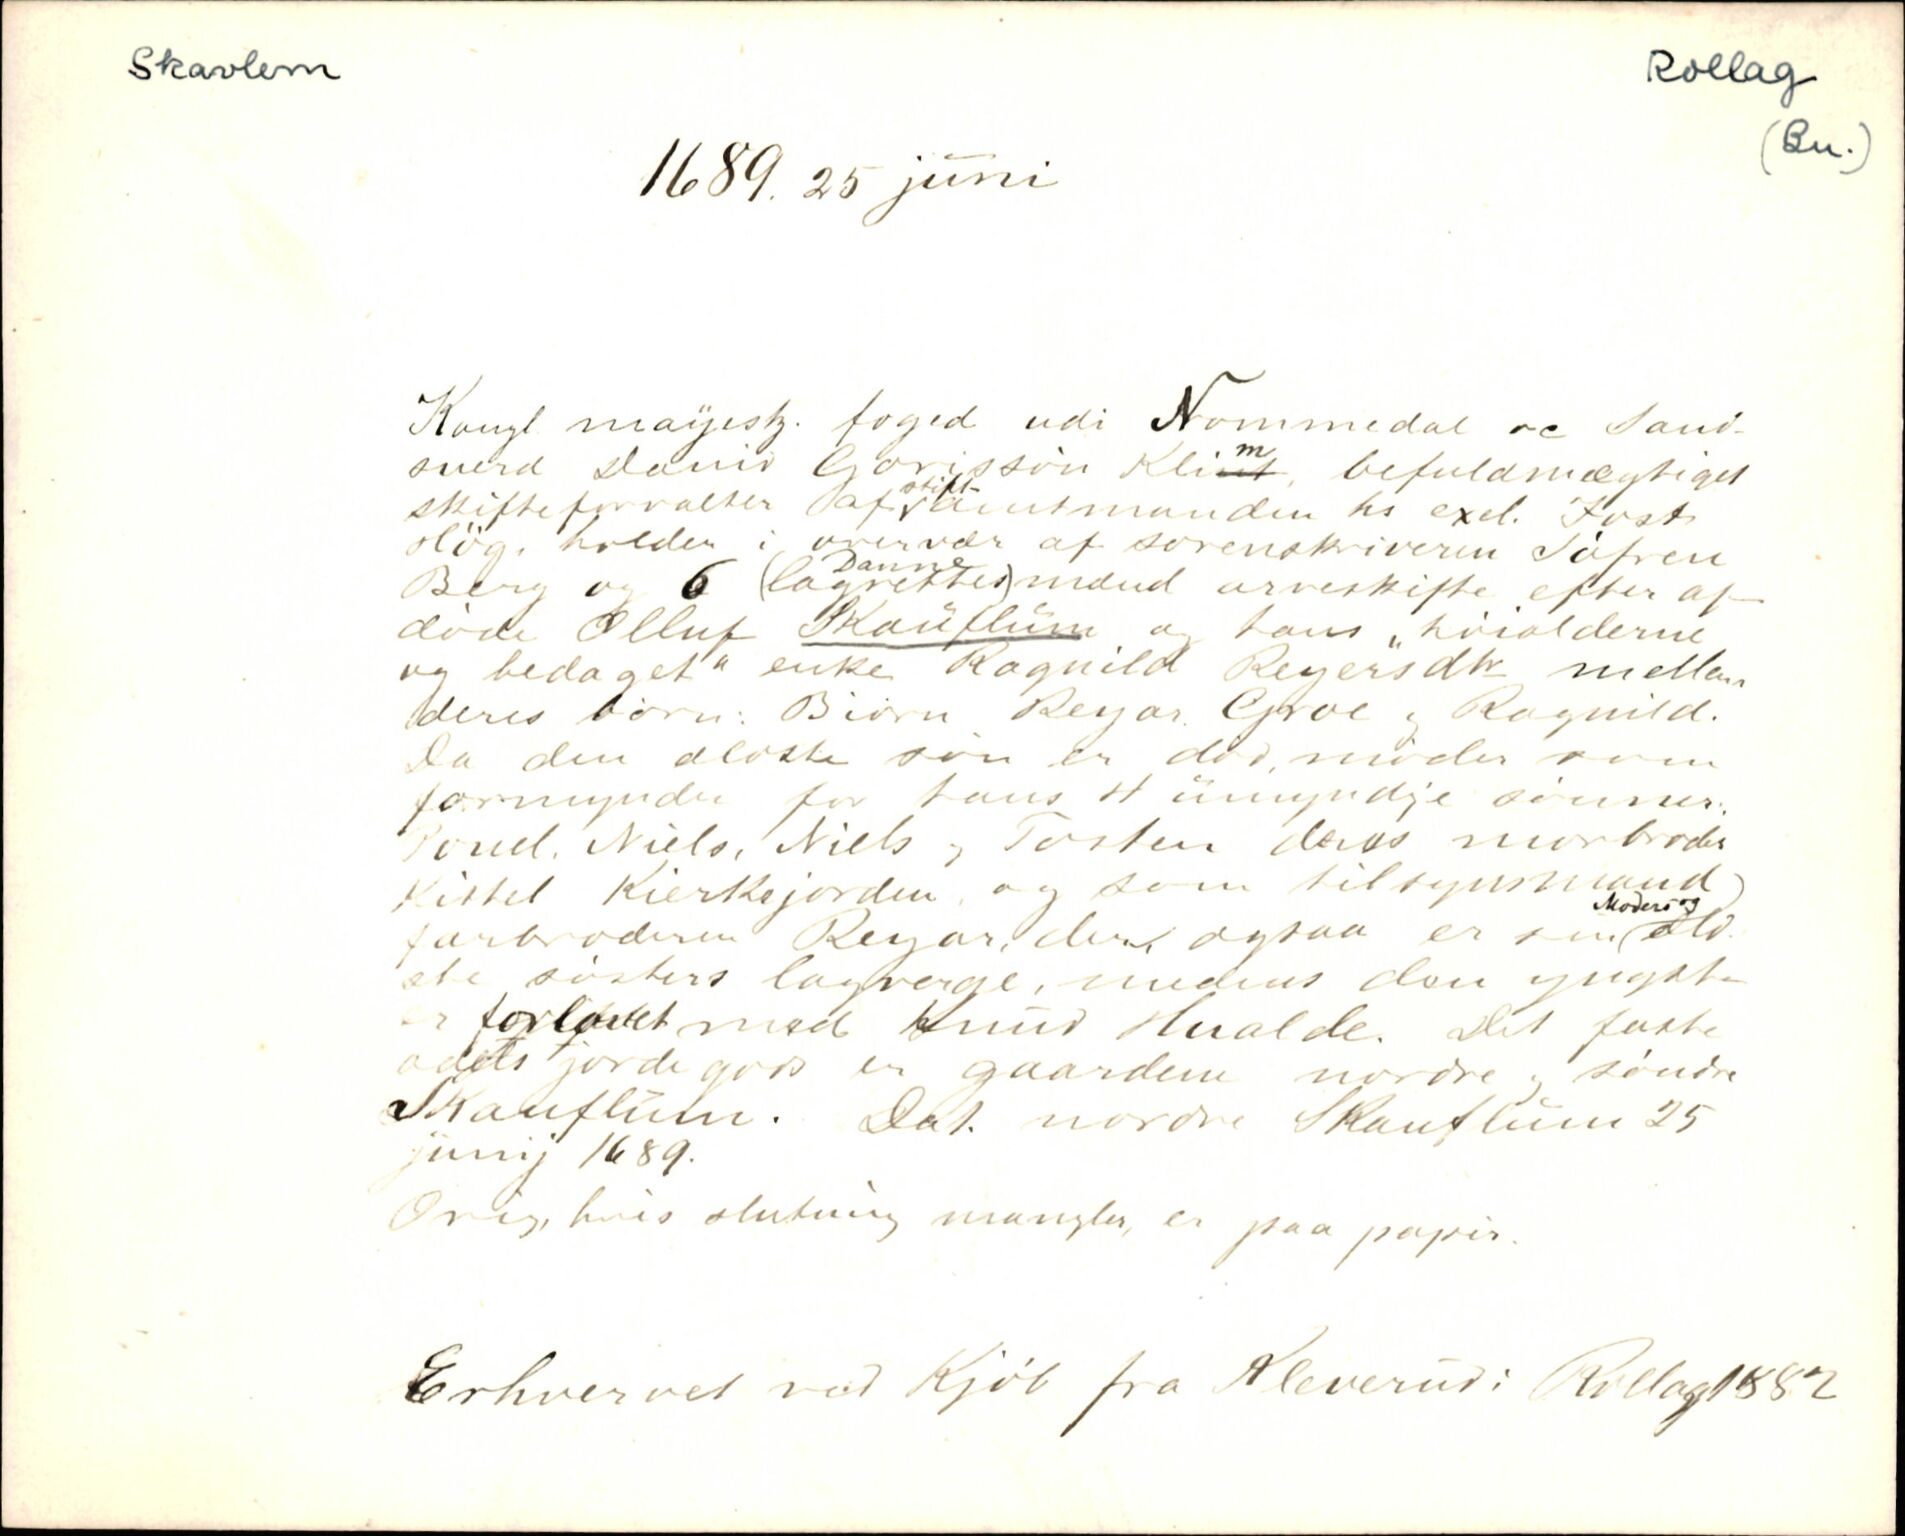 Skavlem
Rollag
(Bu.)
1689. 25 juni
Kongl. mayestz. foged udi Nommedal oc Sand-
suerd Daniel Gorissøn Klim, befuldmægtiget
skifteforvalter af stiftamtmanden hs excl. Jost
Høg, holder i overvær af sorenskriveren Söfren
Berg og 6 (lagrettes) Danne mænd arveskifte efter af-
døde Olluf Skaüflüm og hans "høialderne
og bedaget" enke Ragnild Reyersdtr mellem
deres børn: Biørn, Reyar, Groe og Ragnild.
Da den ældste søn er død, møder som
formynder for hans 4 ümyndije sønner:
Pouel, Niels, Niels og Tosten deres morbroder
Kittel Kierkejorden, og som tilsynsmand
farbroderen Reyar, der ogsaa er sin (Moders og) æld-
ste søsters lagverge, medens den yngste
er forlovet med Knud Hualde. Det faste
odels jordegods er gaardene nordre og søndre
Skauflüm. Dat. nordre Skauflüm 25
junij 1689.
Orig., hvis slutning mangler, er paa papir.
Erhvervet ved Kjøb fra Kleverud i Rollag 1882